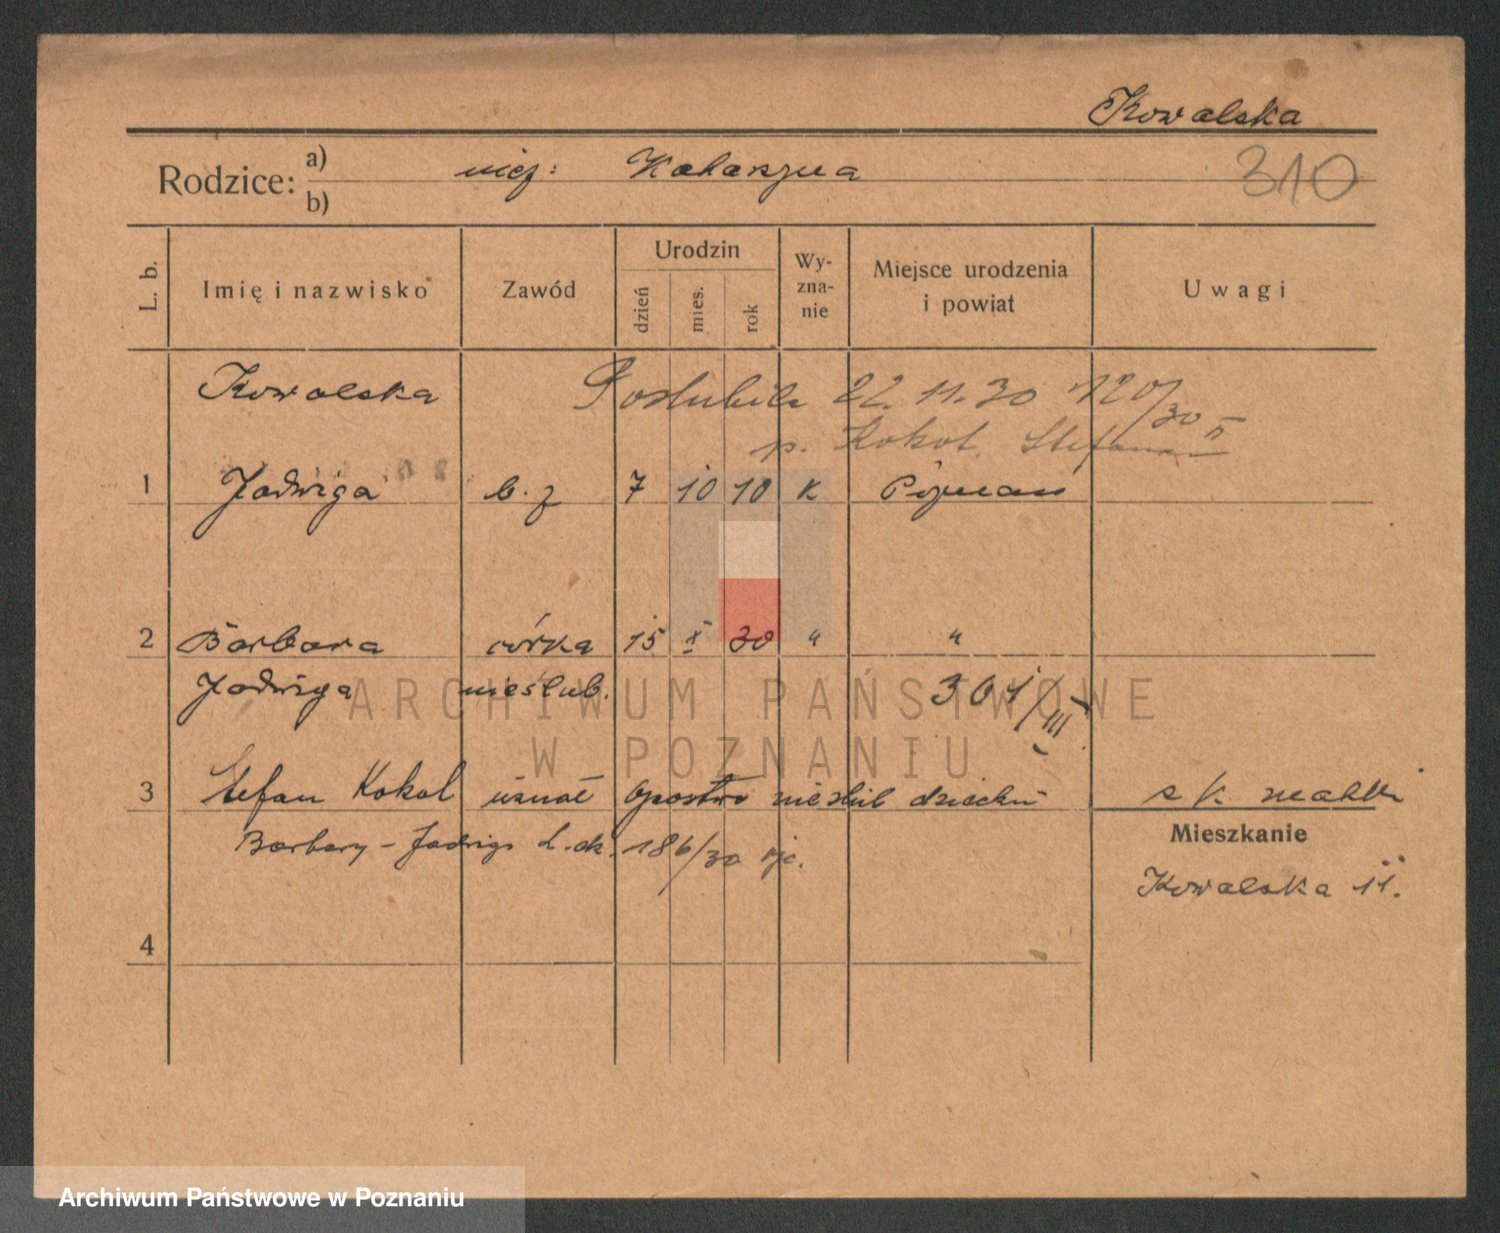 Kowalska
Rodzice: a) niez: Katarzyna 310
b)
L. b. Imię i nazwisko Zawód Urodzin dzień mies. rok Wy-zna-nie Miejsce urodzenia i powiat Uwagi
Kowalska Poślubiła 22. 11. 30 120/30 II
p. Kokot Stefana
1 Jadwiga b. z 7 10 10 k Poznań
2 Barbara córka 15 X 30 " "
Jadwiga nieślub. 301/III
3 Stefan Kokot uznał ojcostwo nieślub dziecka s k matki
Mieszkanie
Barbary - Jadwigi 186/30
Kowalska 11.
4
ARCHIWUM PAŃSTWOWE
W POZNANIU
Archiwum Państwowe w Poznaniu